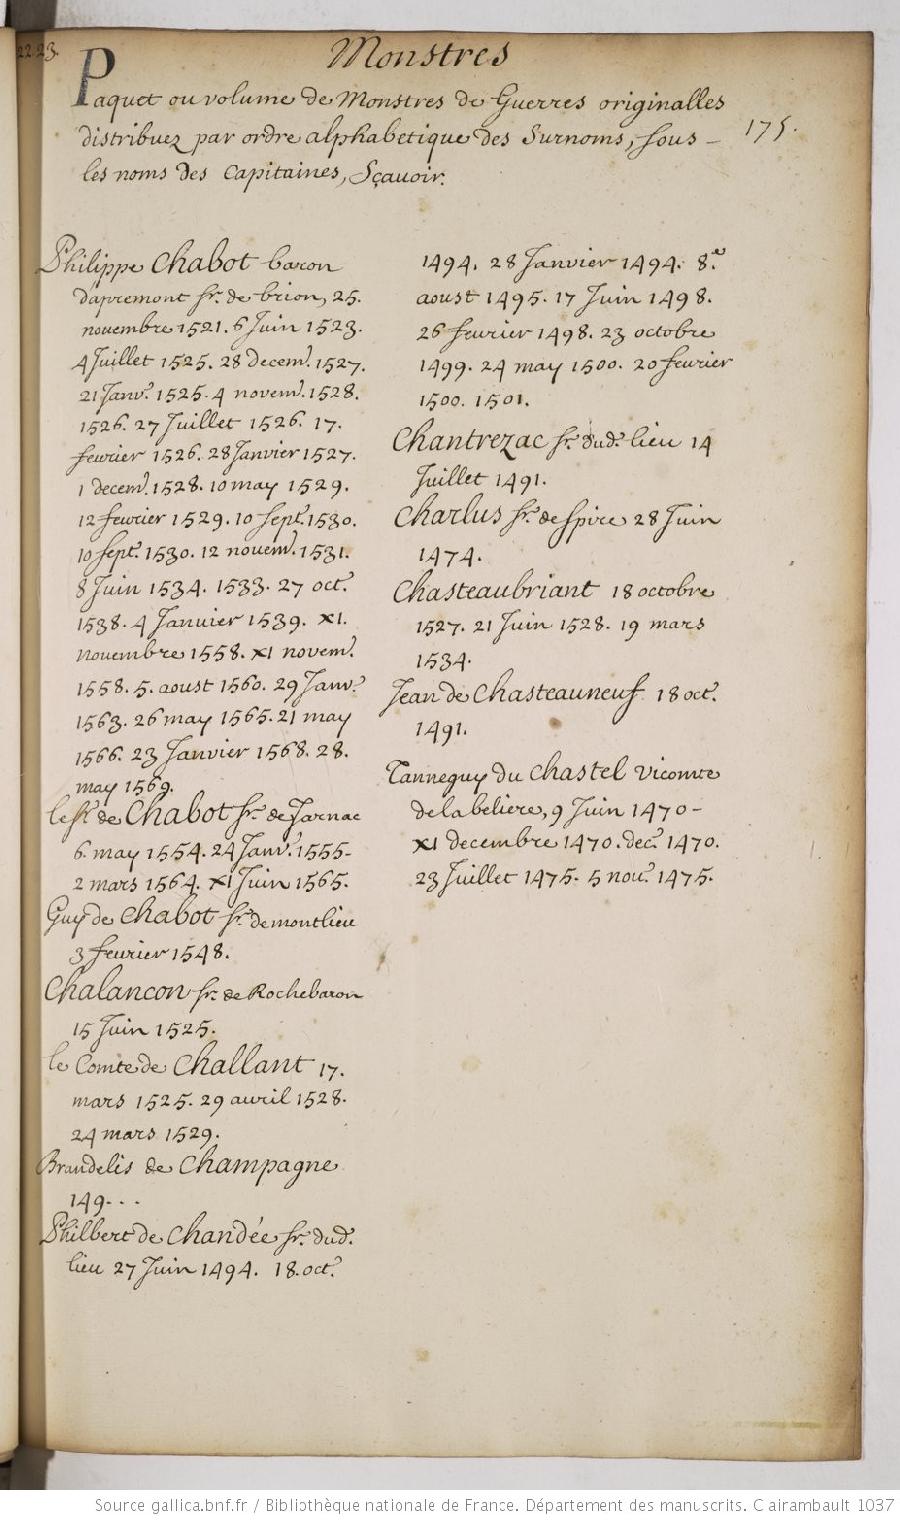 22.23.
Monstres
Paquet ou volume de Monstres de Guerres originalles
distribuez par ordre alphabetique des Surnoms, sous -
les noms des Capitaines, Sçavoir.
175.
Philippe Chabot baron
d'apremont sr. de brion, 25.
novembre 1521. 6 Juin 1523.
4 Juillet 1525. 28 decemr. 1527.
21 Janvr. 1525. 4 novemr. 1528.
1526. 27 Juillet 1526. 17.
fevrier 1526. 28 Janvier 1527.
1 decemr. 1528. 10 may 1529.
12 fevrier 1529. 10 Sept. 1530.
10 sept. 1530. 12 novemr. 1531.
8 Juin 1534. 1533. 27 oct.
1538. 4 Janvier 1539. XI.
novembre 1558. XI novem.
1558. 5. aoust 1560. 29 Janvr.
1563. 26 may 1565. 21 may
1566. 23 Janvier 1568. 28.
may 1569.
le sr. de Chabot sr. de Jarnac
6. may 1554. 24 Janvr. 1555-
2 mars 1564. XI Juin 1565.
Guy de Chabot sr. de montlieu
3 fevrier 1548.
Chalancon sr. de Rochebaron
15 Juin 1525.
le Comte de Challant 17.
mars 1525. 29 avril 1528.
24 mars 1529.
Brandelis de Champagne
149...
Philbert de Chandée sr. dud.
lieu 27 Juin 1494. 18. oct.
1494. 28 Janvier 1494. 8e.
aoust 1495. 17 Juin 1498.
26 fevrier 1498. 23 octobre
1499. 24 may 1500. 20 fevrier
1500. 1501.
Chantrezac sr. dud. lieu 14
Juillet 1491.
Charlus sr. de spire 28 Juin
1474.
Chasteaubriant 18 octobre
1527. 21 Juin 1528. 19 mars
1534.
Jean de Chasteauneuf 18 oct.
1491.
Tanneguy du Chastel Vicomte
de la beliere, 9 Juin 1470-
XI decembre 1470. dec. 1470.
23 Juillet 1475. 5 nov. 1475.
Source gallica.bnf.fr / Bibliothèque nationale de France. Département des manuscrits. Clairambault 1037